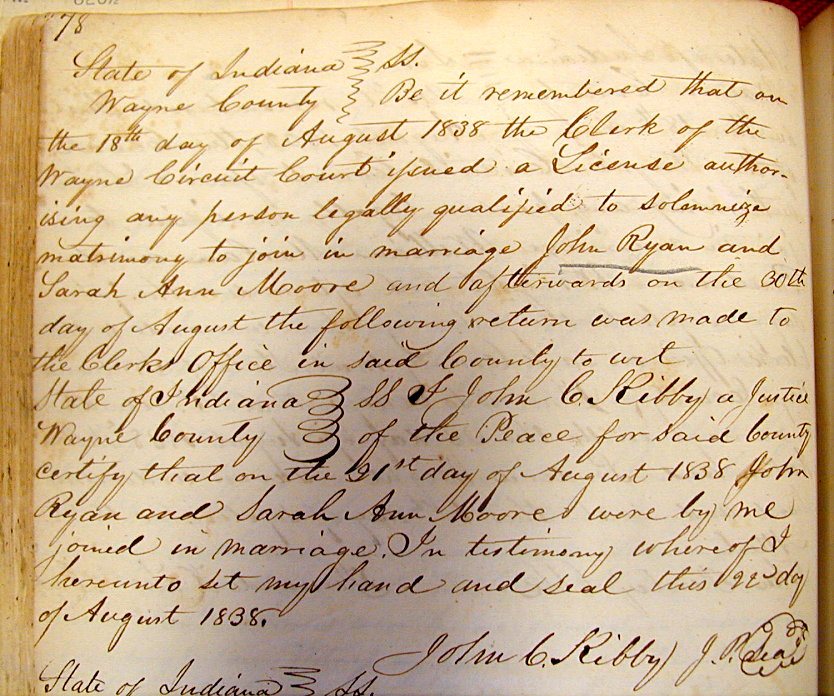 78
State of Indiana } SS.
Wayne County } Be it remembered that on
the 18th day of August 1838 the Clerk of the
Wayne Circuit Court issued a License author-
ising any person legally qualified to solemnize
matrimony to join in marriage John Ryan and
Sarah Ann Moore and afterwards on the 30th
day of August the following return was made to
the Clerks Office in said County to wit
State of Indiana } SS I John C. Kibby a Justice
Wayne County } of the Peace for said County
certify that on the 21st day of August 1838 John
Ryan and Sarah Ann Moore were by me
joined in marriage. In testimony whereof I
hereunto set my hand and seal this 22d day
of August 1838.
John C. Kibby J. P. Seal
State of Indiana } SS.